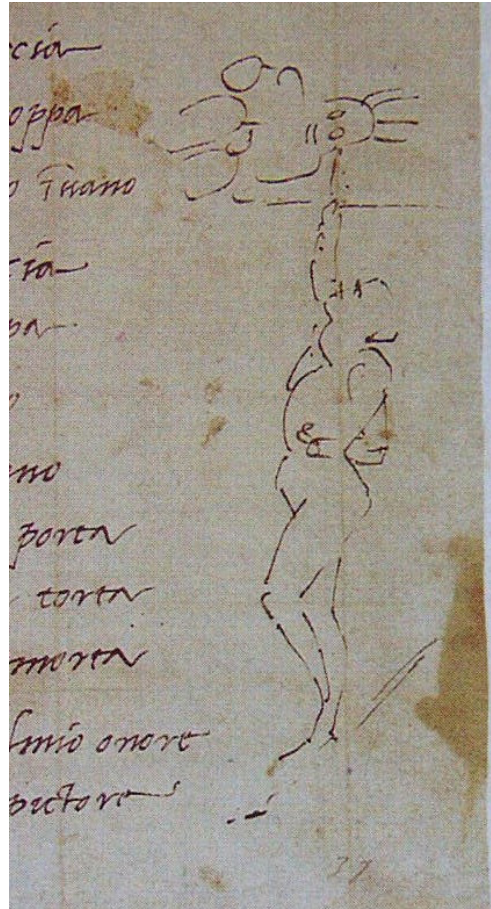 ccia
oppa
o Tirano
cia
pa
o
no
porta
torta
morta
l mio onore
pictore